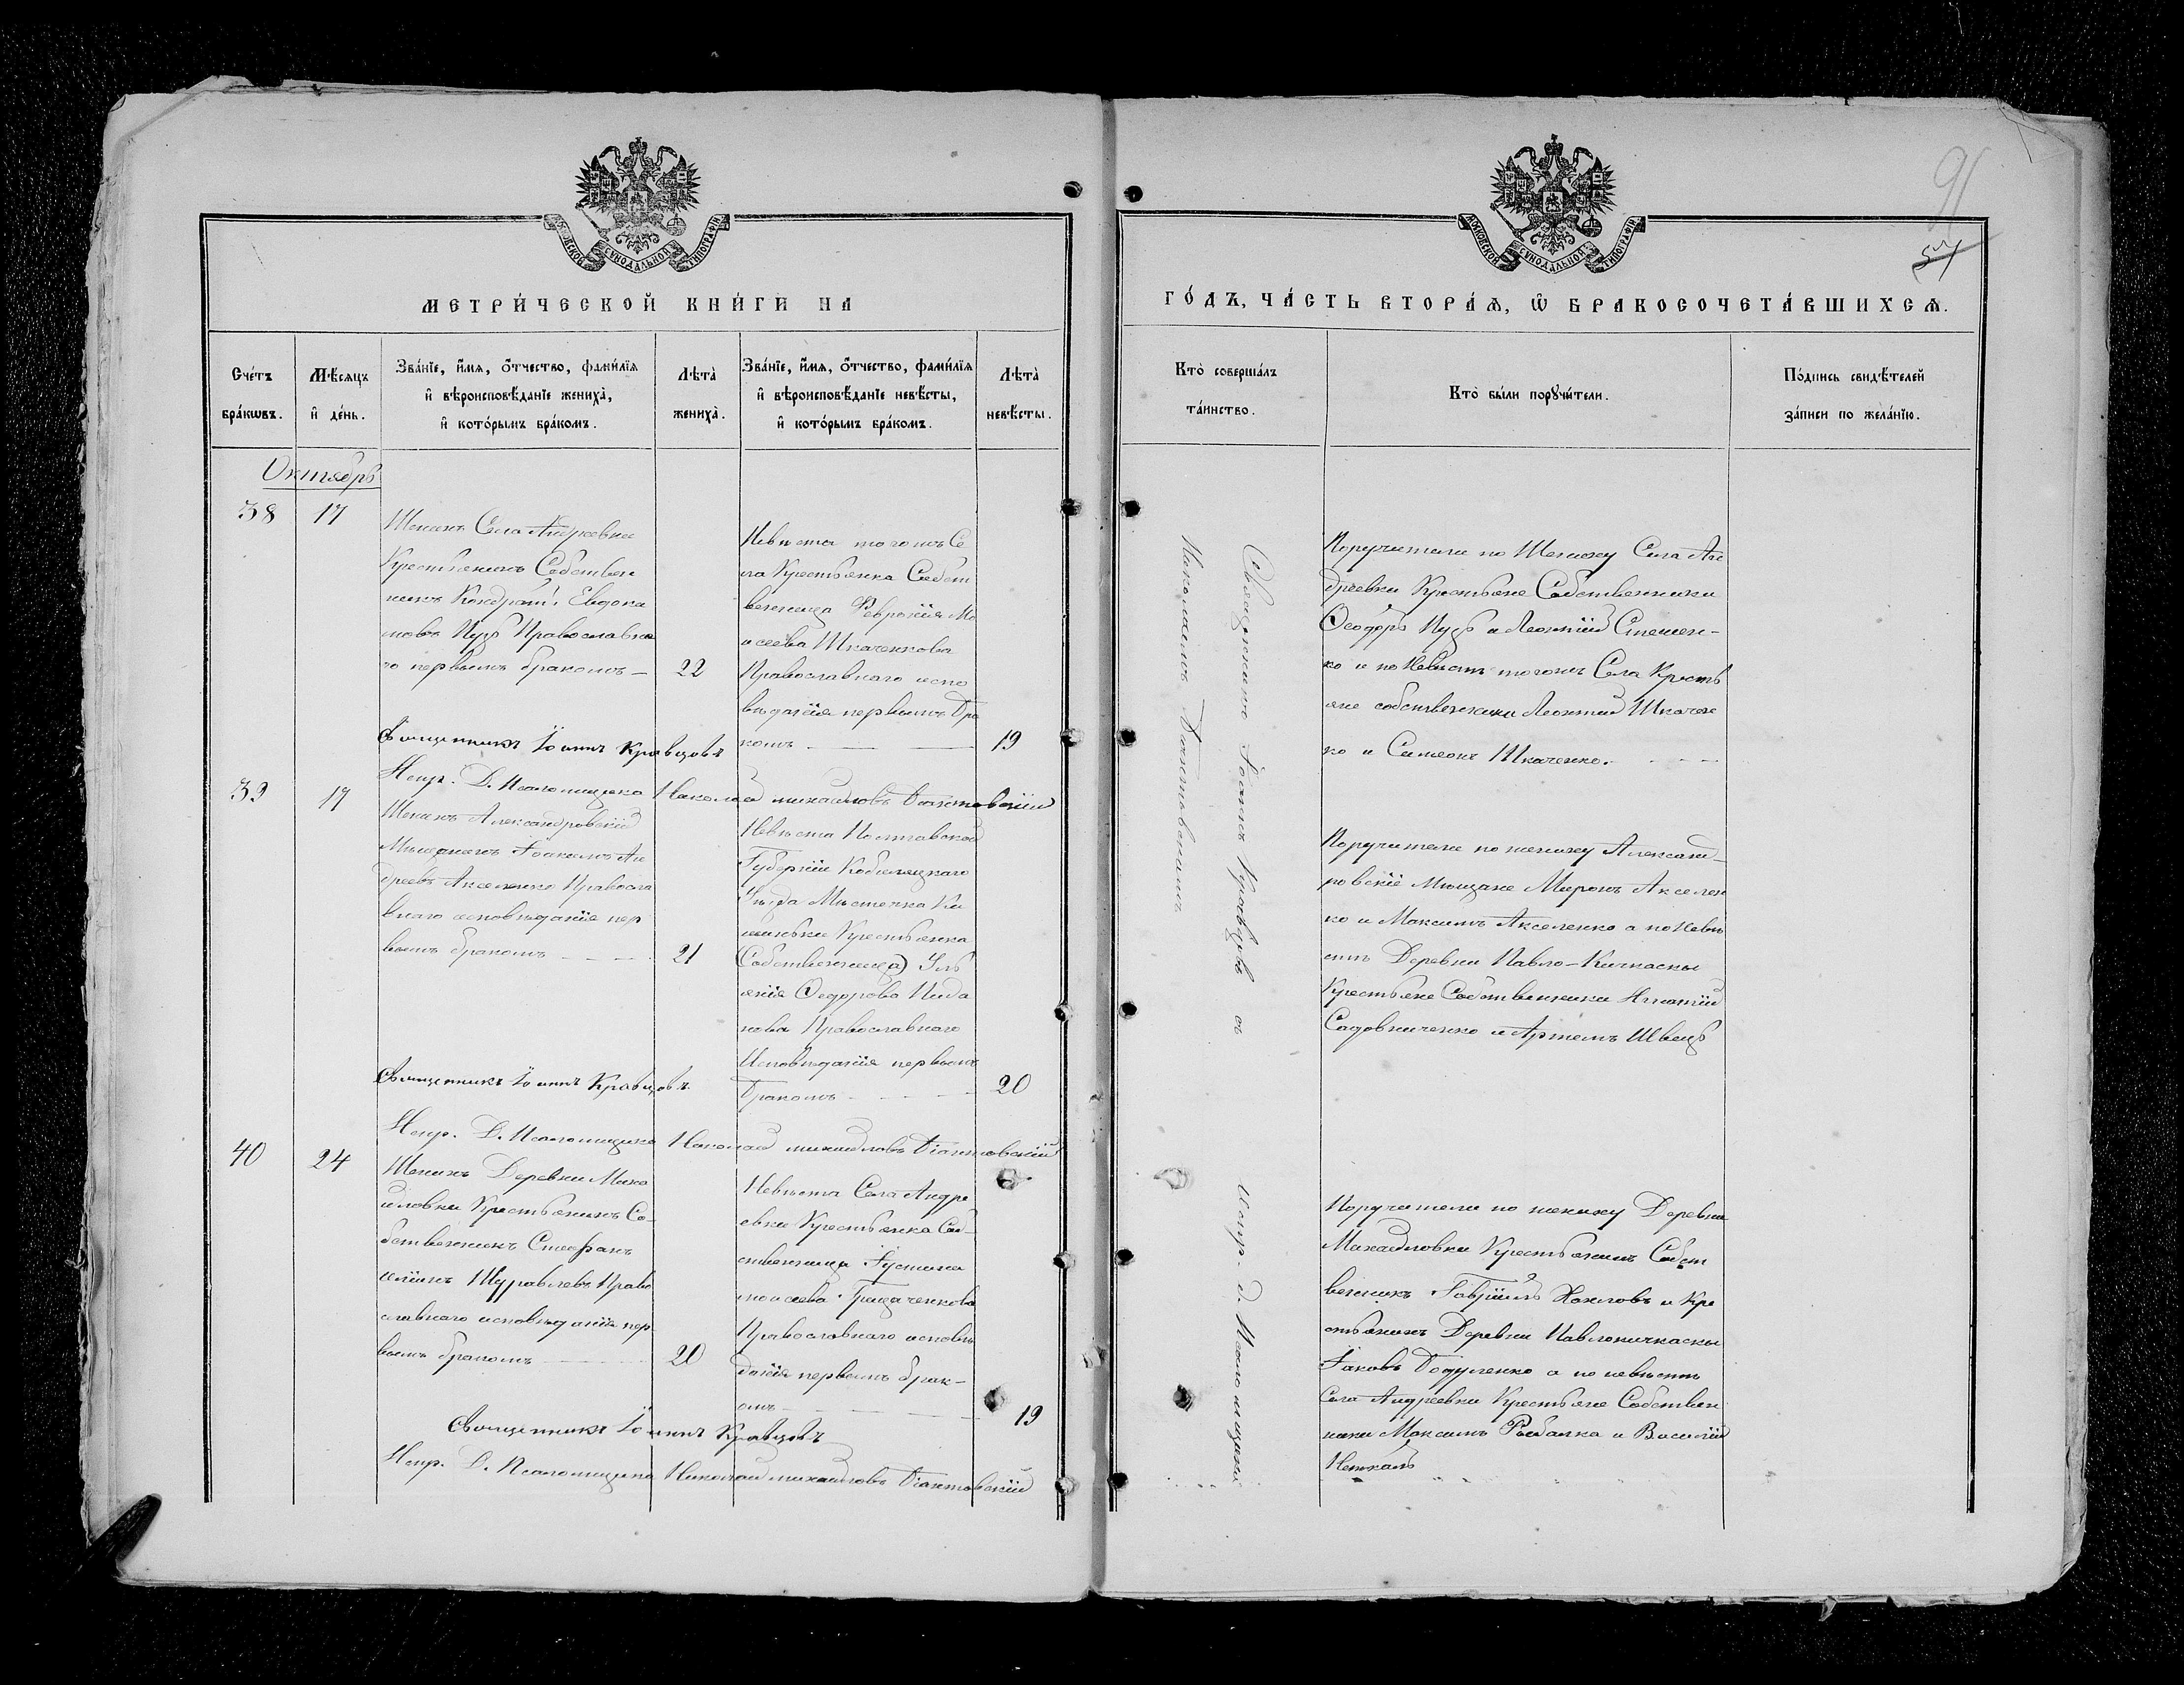 МОСКОВСКОЙ СѴНОДАЛЬНОЙ ТИПОГРАФІИ
МЕТРИ́ЧЕСКОЙ КНИ́ГИ НА
Сче́тъ бра́кѡвъ.
Мѣ́сяцъ и҆ де́нь.
Зва́нїе, и҆́мя, ѻ҆́тчество, фами́лїя
и҆ вѣроисповѣ́данїе жениха̀,
и҆ кото́рымъ бра́комъ.
Лѣта̀
жениха̀.
Зва́нїе, и҆́мя, ѻ҆́тчество, фами́лїя
и҆ вѣроисповѣ́данїе невѣ́сты,
и҆ кото́рымъ бра́комъ.
Лѣта̀
невѣ́сты.
Октябрь
38
17
Женихъ Села Андреевки
Крестьянинъ Собствен
никъ Кондратій Евдоки
мовъ Пузь Православна
го первымъ бракомъ —
22
Невѣста тогожъ Се
ла Крестьянка Собст
венница Февронія Мо
исеева Ткаченкова
Православнаго испо
вѣданія первымъ Бра
комъ —
19
Священникъ Іоаннъ Кравцовъ
Испр. Д. Псаломщика Николай михайловъ
39
17
Женихъ Александровскій
Мѣщанинъ Іоакимъ Ан
дреевъ Акселенко Правосла
внаго исповѣданія пер
вымъ бракомъ
21
Невѣста Полтавской
Губерніи Кобеляцкаго
Уѣзда Мѣстечка Ки
шинки Крестьянка
(Собственница) Уль
янія Ѳедорова Пида
нова Православнаго
Исповѣданія первымъ
Бракомъ
20
Священникъ Іоаннъ Кравцовъ.
Испр. Д. Псаломщика Николай михайловъ
40
24
Женихъ Деревни Миха
йловки Крестьянинъ Со
бственникъ Стефанъ
Журавлевъ Право
славнаго исповѣданія пер
вымъ бракомъ
20
Невѣста Села Андре
евки Крестьянка Соб
ственница Іустина
моисеева Грицаченкова
Православнаго исповѣ
данія первымъ брак-
омъ
19
Священникъ Іоаннъ Кравцовъ
Испр. Д. Псаломщика Николай михайловъ
МОСКОВСКОЙ СѴНОДАЛЬНОЙ ТИПОГРАФІИ
91
57
ГО́ДЪ, ЧА́СТЬ ВТОРА́Ѧ, Ѽ БРАКОСОЧЕТА́ВШИХСѦ.
Кто̀ соверша́лъ
та́инство.
Кто̀ бы́ли порꙋчи́тели.
По́дпись свидѣ́телей
за́писи по жела́нїю.
Священникъ Іоаннъ Кравцовъ съ Испр. д. Псаломщика
Николаемъ
Поручители по Жениху Села Ан
дреевки Крестьяне Собственники
Ѳеодоръ Пузь и Леонтій Стешен-
ко и по Невѣстѣ тогожъ Села Кресть
яне собственники Леонтій Ткачен
ко и Симеонъ Ткаченко.
Поручители по жениху Александ-
ровскіе Мѣщане Миронъ Акселен
ко и Максимъ Акселенко а по Невѣ
стѣ Деревни Павло-Кичкасы
Крестьяне Собственники Игнатій
Садовниченко и Артемъ Швецъ
Поручители по жениху Деревни
Михайловки Крестьянинъ Собст
венникъ Гавріилъ Хохловъ и Кре
стьянинъ Деревни Павлокичкасы
Іаковъ а по невѣстѣ
Села Андреевки Крестьяне Собствен
ники Максимъ Рыбалка и Василій